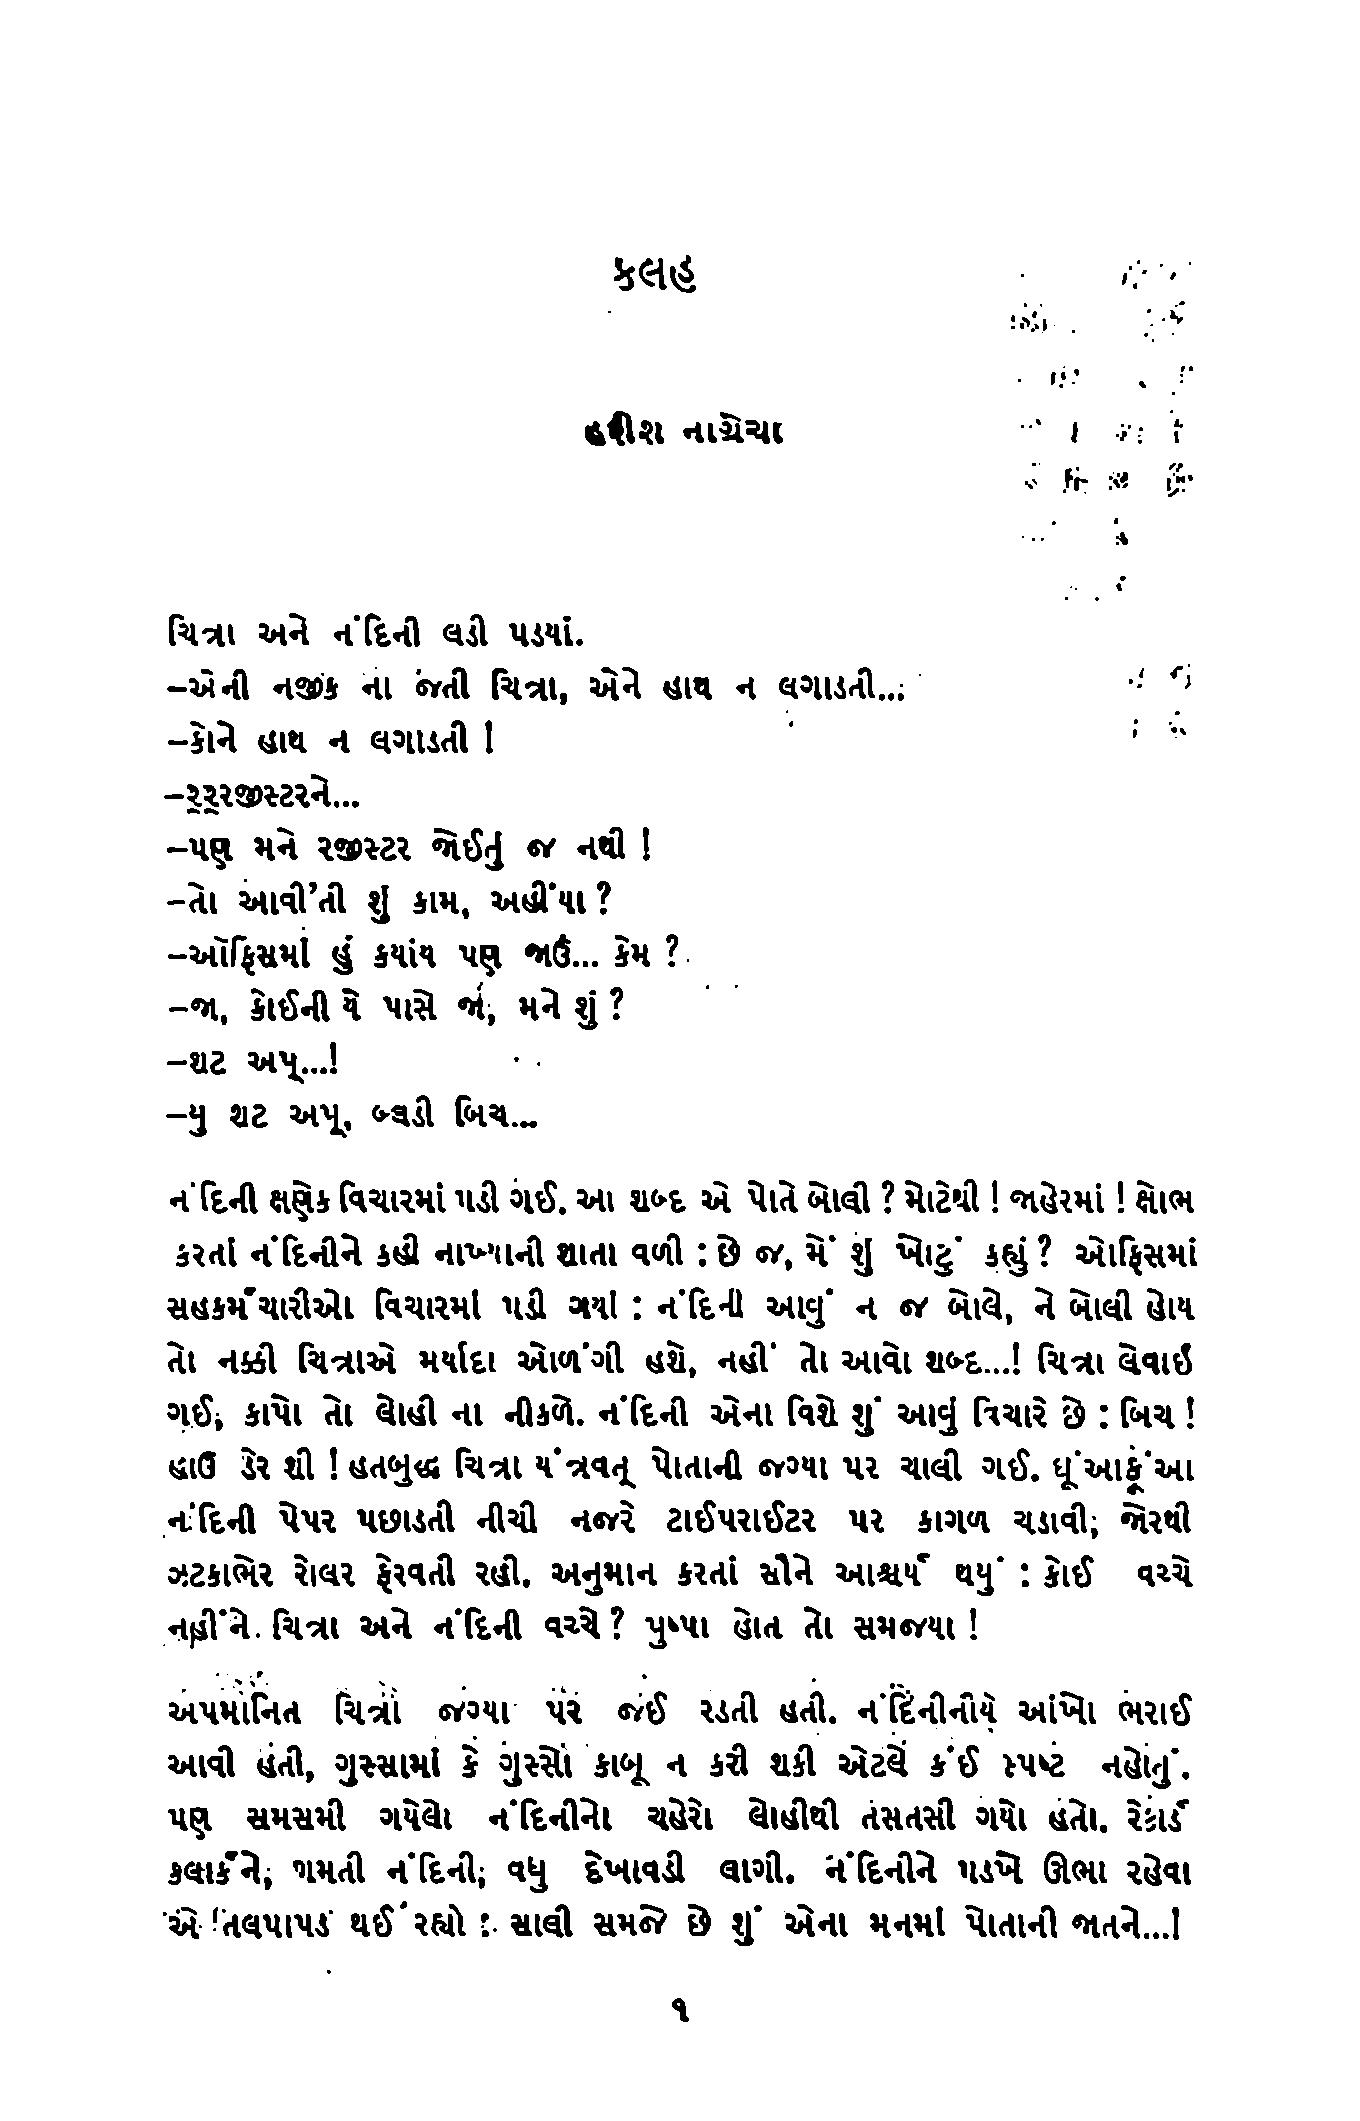 કલહ
હરીશ નાગ્રેચા
ચિત્રા અને નંદિની લડી પડયાં.
–એની નજીક ના જતી ચિત્રા, એને હાથ ન લગાડતી...
–કોને હાથ ન લગાડતી !
–ર્‌ર્‌રજીસ્ટરને...
–પણ મને રજીસ્ટર જોઈતું જ નથી !
–તો આવી'તી શું કામ, અહીંયા ?
–ઑફિસમાં હું કયાંય પણ જાઉં... કેમ ?
–જા, કોઈની યે પાસે જા, મને શું ?
–શટ અપ્...!
–યુ શટ અપ્, બ્લડી બિચ...
નંદિની ક્ષણેક વિચારમાં પડી ગઈ. આ શબ્દ એ પોતે બોલી ? મોટેથી ! જાહેરમાં ! ક્ષોભ
કરતાં નંદિનીને કહી નાખ્યાની શાતા વળી : છે જ, મેં શું ખોટું કહ્યું ? ઓફિસમાં
સહકર્મચારીઓ વિચારમાં પડી ગયાં : નંદિની આવું ન જ બોલે, ને બોલી હોય
તો નક્કી ચિત્રાએ મર્યાદા ઓળંગી હશે, નહીં તો આવો શબ્દ...! ચિત્રા લેવાઈ
ગઈ; કાપો તો લોહી ના નીકળે. નંદિની એના વિશે શું આવું વિચારે છે : બિચ !
હાઉ ડેર શી ! હતબુદ્ધ ચિત્રા યંત્રવત્ પોતાની જગ્યા પર ચાલી ગઈ. ધૂંઆફૂંઆ
નંદિની પેપર પછાડતી નીચી નજરે ટાઈપરાઈટર પર કાગળ ચડાવી; જોરથી
ઝટકાભેર રોલર ફેરવતી રહી. અનુમાન કરતાં સૌને આશ્ચર્ય થયું : કોઈ વચ્ચે
નહીંને. ચિત્રા અને નંદિની વચ્ચે ? પુષ્પા હોત તો સમજયા !
અપમાનિત ચિત્રા જગ્યા પર જઈ રડતી હતી. નંદિનીનીયે આંખો ભરાઈ
આવી હતી, ગુસ્સામાં કે ગુસ્સો કાબૂ ન કરી શકી એટલે કંઈ સ્પષ્ટ નહોતું.
પણ સમસમી ગયેલો નંદિનીનો ચહેરો લોહીથી તસતસી ગયો હતો. રેકાર્ડ
કલાર્કને; ગમતી નંદિની; વધુ દેખાવડી લાગી. નંદિનીને પડખે ઊભા રહેવા
એ તલપાપડ થઈ રહ્યો : સાલી સમજે છે શું એના મનમાં પોતાની જાતને...!
૧